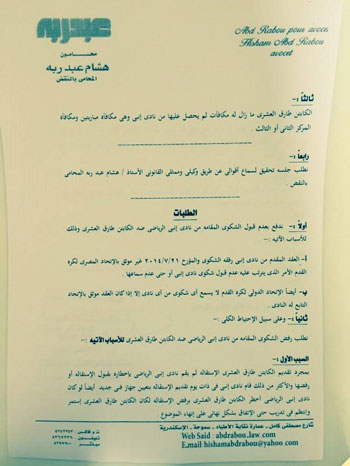 عبدربه
محامون
هشام عبد ربه
المحامى بالنقض
Abd Rabou pour avocet
Hisham Abd Rabou
avocet
ثالثاً :-
الكابتن طارق العشرى ما زال له مكافآت لم يحصل عليها من نادى إنبى وهى مكافأة مباريتين ومكافأة
المركز الثانى أو الثالث .
رابعاً :-
نطلب جلسه تحقيق لسماع أقوالى عن طريق وكيلى وممثلى القانونى الأستاذ / هشام عبد ربه المحامى
بالنقض .
الطلبات
أولاً :- ندفع بعدم قبول الشكوى المقامه من نادى إنبى الرياضى ضد الكابتن طارق العشرى وذلك
للأسباب الآتيه :-
أ- العقد المقدم من نادى إنبى رفقه الشكوى والمؤرخ ٢٠١٤/٧/٢١ غير موثق بالإتحاد المصرى لكره
القدم الأمر الذى يترتب عليه عدم قبول شكوى نادى إنبى أو حتى عدم سماعها .
ب- أيضاً الإتحاد الدولى لكره القدم لا يسمع أى شكوى من أى نادى إلا إذا كان العقد موثق بالإتحاد
التابع له النادى .
ثانياً :- وعلى سبيل الإحتياط الكلى :-
نطلب رفض الشكوى المقامه من نادى إنبى الرياضى ضد الكابتن طارق العشرى للأسباب الآتيه :-
السبب الأول :-
بمجرد تقديم الكابتن طارق العشرى الإستقاله لم يقم نادى إنبى الرياضى بإخطاره بقبول الإستقاله أو
رفضها والأكثر من ذلك قام نادى إنبى فى ذات يوم تقديم الإستقاله بتعيين جهاز فنى جديد أيضاً لو كان
نادى إنبى الرياضى أخطر الكابتن طارق العشرى برفض الإستقاله لكان الكابتن طارق العشرى إستمر
وإنتظم فى تدريب حتى الإتفاق بشكل نهائى على إنهاء الموضوع .
شارع مصطفى كامل - عمارة نقابة الأطباء - سموحة - الإسكندرية
Web Said : abdrabou.law.com
E.mail hishamabdrabou@yahoo.com